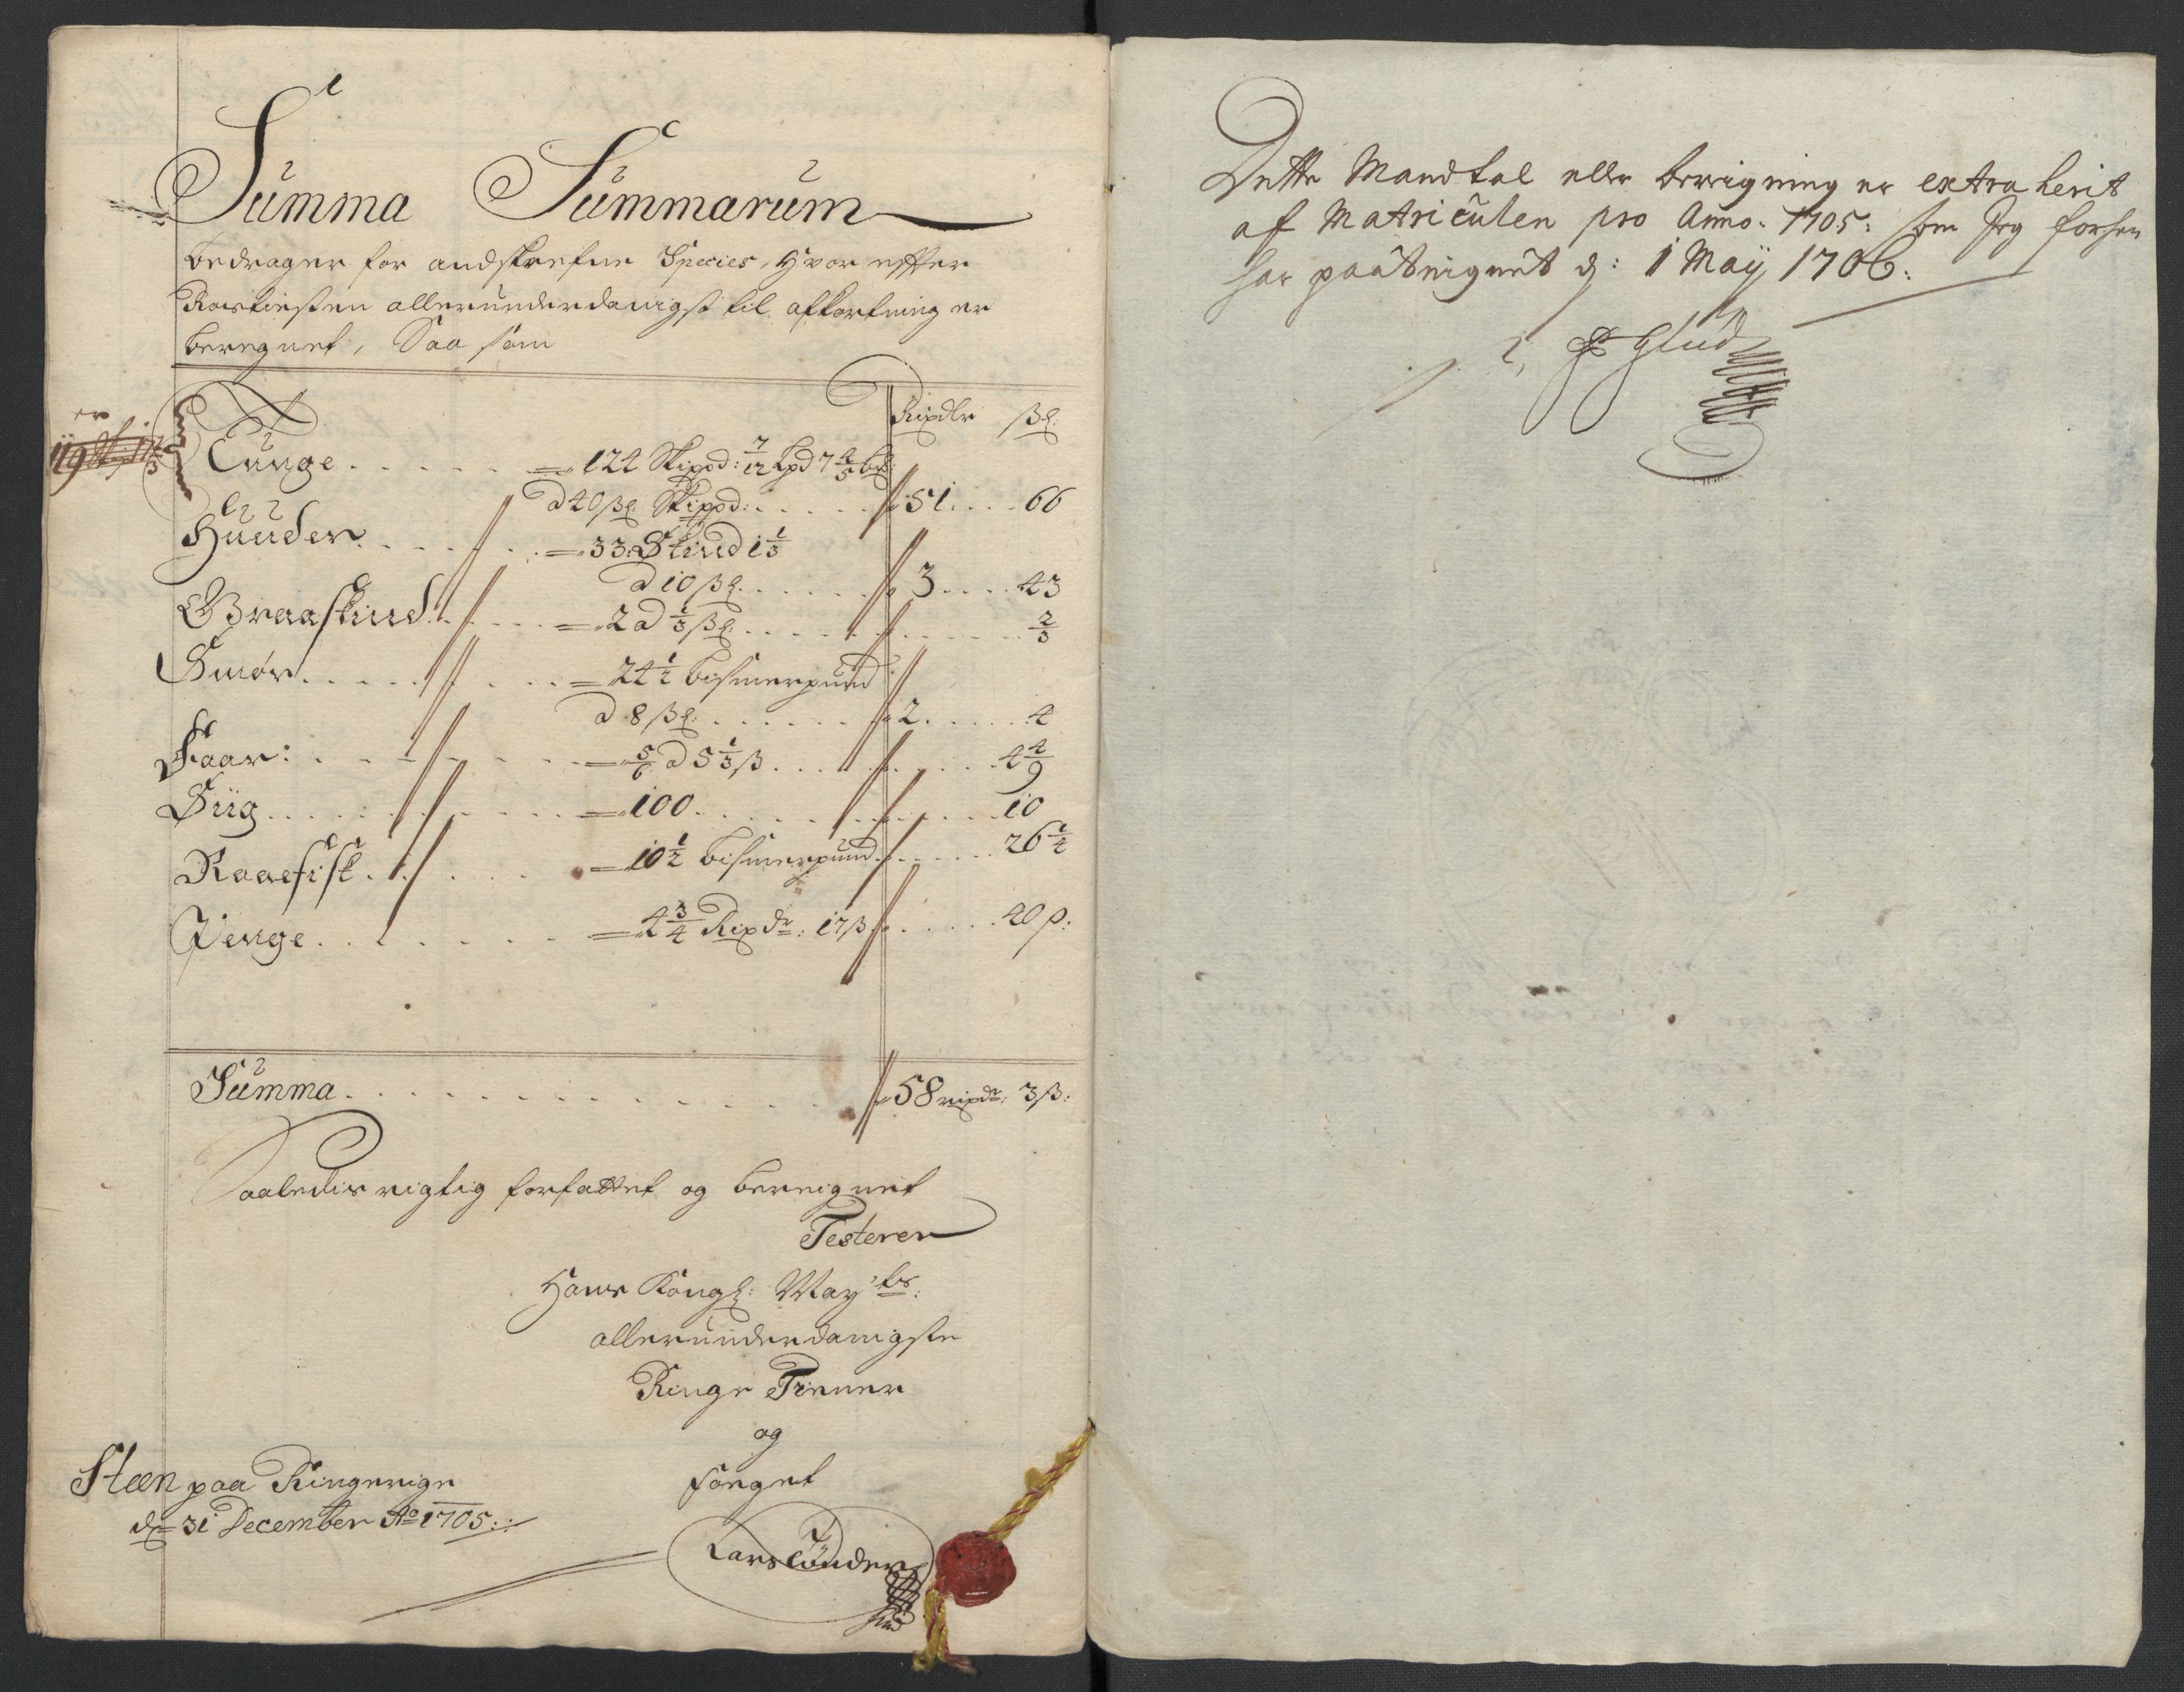 Summa Summarum
bedrager for andskrefne Species, Hvor effter
Rostienesten allerunderdanigst til afkortning er
beregnet, Saa som
Rixdlr ß
er
Tunge . . . . . 124 Skippd: 7/12 Lpd 7 4/5 bl:
a 40 ß Skippd: . . . . . 51 . . . . 66
Huuder . . . . . 33 Skind 1 1/3
a 10 ß . . . . . 3 . . . . 43
Graaskind . . . . . 2 a 1/3 ß . . . . . 2/3
Smør . . . . . 24 1/2 bismerpund
a 8 ß . . . . . 2 . . . . 4
Faar: . . . . . 5/6 a 5 1/3 ß . . . . . 4 4/9
Siig . . . . . 100 . . . . . 10
Raaefisk . . . . . 10 1/2 bismerpund . . . . . 26 1/4
Penge . . . . . 4 3/4 Rixdr: 17 ß . . . . . 40 ß:
Summa . . . . . 58 rixdr: 3 ß:
Saaledis rigtig forfattet og bereignet
Testerer
Hans Kongl: May:ts:
allerunderdanigste
Ringe Tiener
og
Foeget
Steen paa Ringerige
dn 31 December Ao 1705:
Lars Tønder
Dette Mandtal eller berrigning er extraherit
af Matriculen pro Anno: 1705: som Jeg forhen
har paateignet d: 1 Maij 1706:
Glud